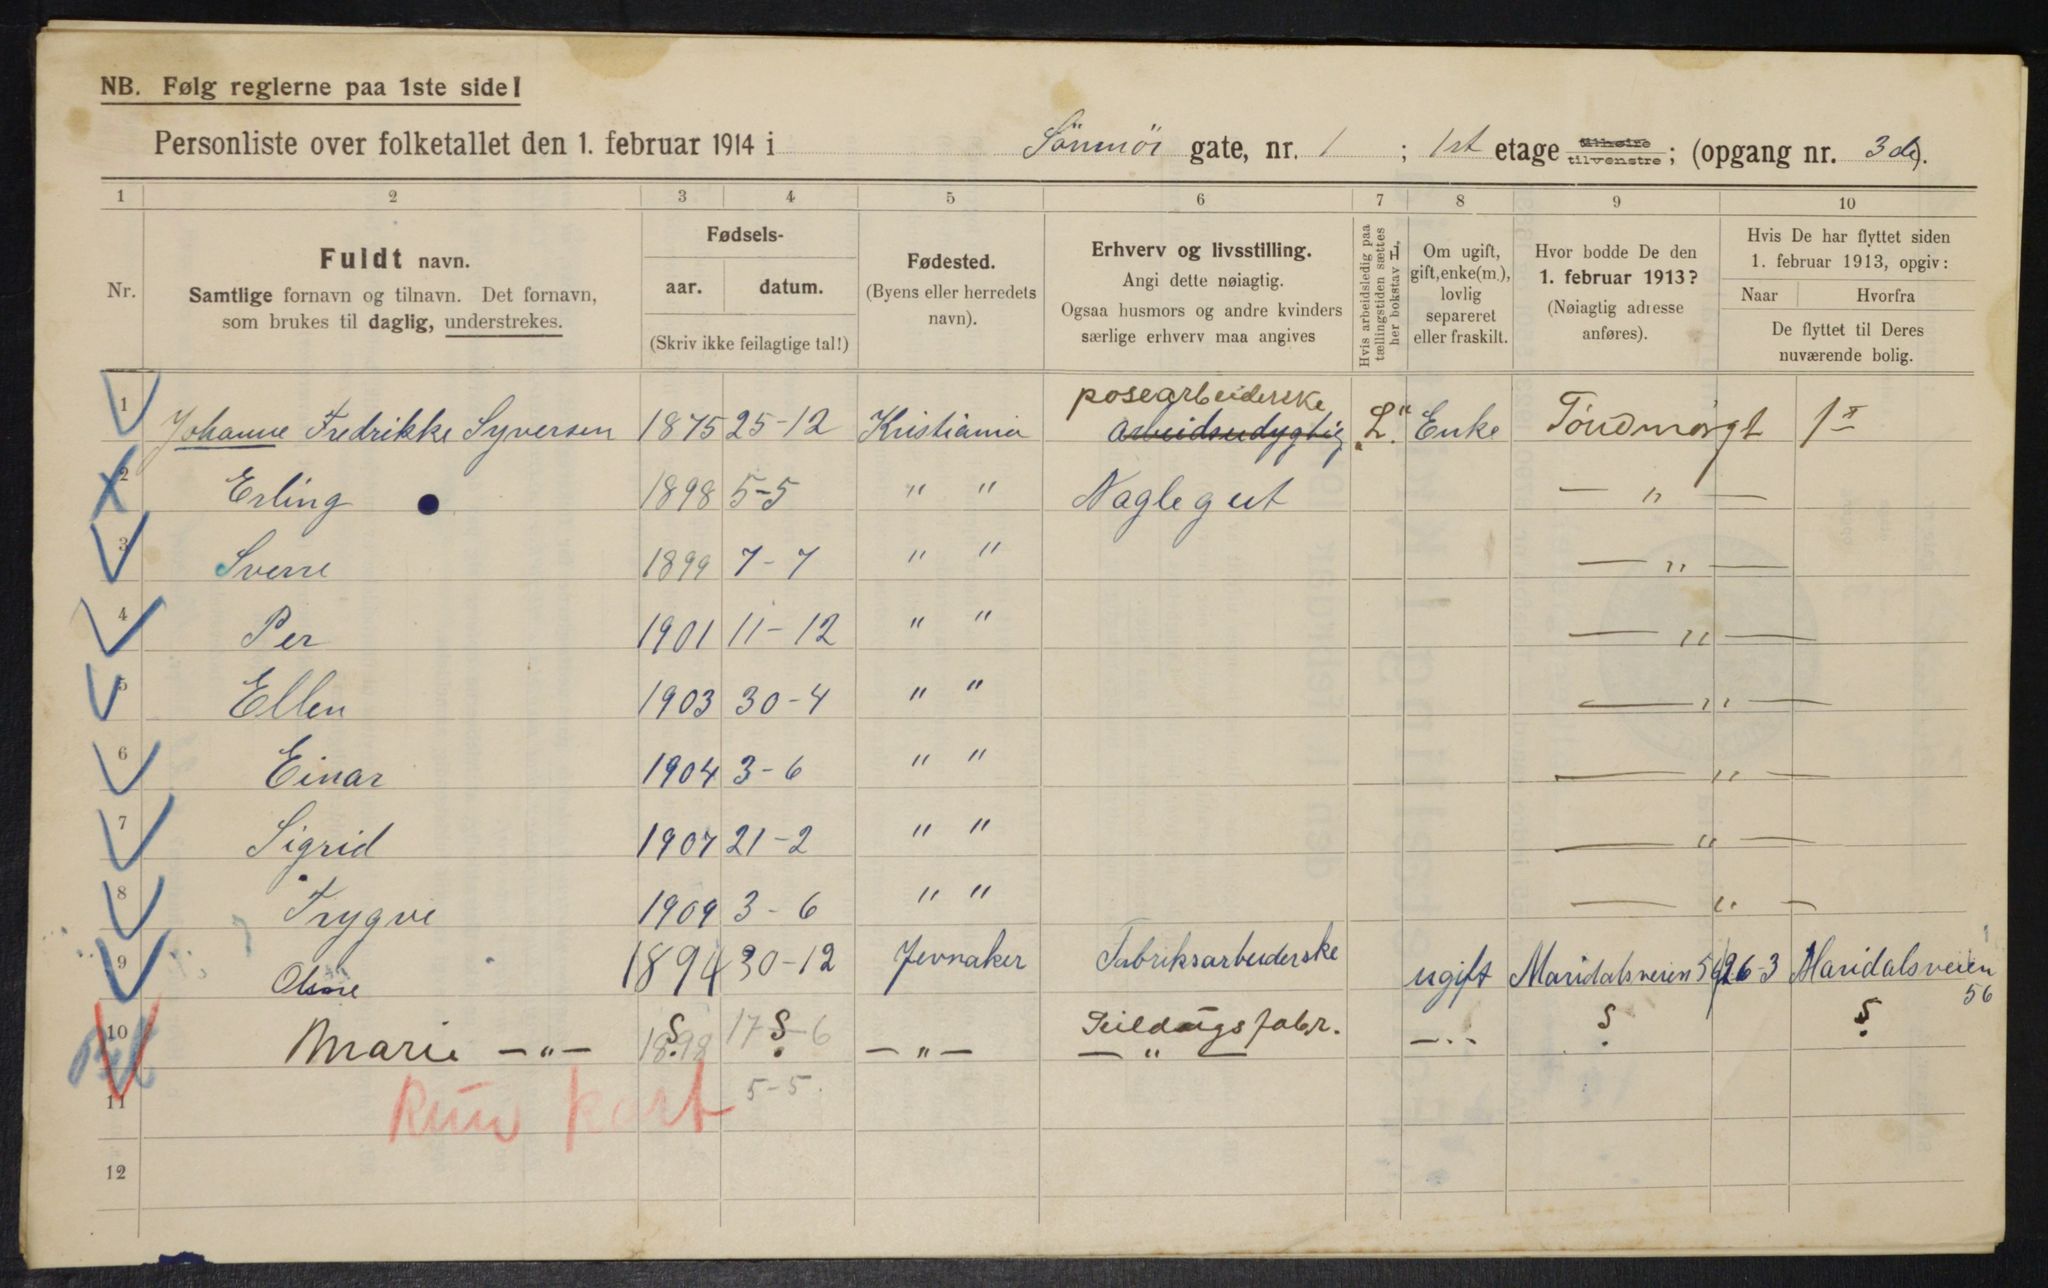 NB. Følg reglerne paa 1ste side!
Personliste over folketallet den 1. februar 1914 i Sönmör gate, nr. 1 ; 1st etage tilhøire tilvenstre ; (opgang nr. 3de).
1 2 3 4 5 6 7 8 9 10
Nr.
Fuldt navn.
Samtlige fornavn og tilnavn. Det fornavn,
som brukes til daglig, understrekes.
Fødsels-
aar. datum.
(Skriv ikke feilagtige tal!)
Fødested.
(Byens eller herredets
navn).
Erhverv og livsstilling.
Angi dette nøiagtig.
Ogsaa husmors og andre kvinders
særlige erhverv maa angives
Hvis arbeidsledig paa
tællingstiden sættes
her bokstav L.
Om ugift,
gift, enke(m.),
lovlig
separeret
eller fraskilt.
Hvor bodde De den
1. februar 1913?
(Nøiagtig adresse
anføres).
Hvis De har flyttet siden
1. februar 1913, opgiv:
Naar Hvorfra
De flyttet til Deres
nuværende bolig.
posearbeiderske
1 Johanne Fredrikke Syversen 1875 25-12 Kristiania arbeidsudygtig "L." Enke 1 II
2 Erling 1898 5-5 " " Naglegut — " —
3 Sverre 1899 7-7 " " — " —
4 Per 1901 11-12 " " — " —
5 Ellen 1903 30-4 " " — " —
6 Einar 1904 3-6 " " — " —
7 Sigrid 1907 21-2 " " — " —
8 Trygve 1909 3-6 " " — " —
9 1894 30-12 Jevnaker Fabriksarbeiderske ugift Maridalsveien 56 26-3 Maridalsveien
56
Seildugsfabr.
10 Marie — " — 1898 S. 17-6 S. — " — — " — — " — S. S.
11 5-5.
kort
12